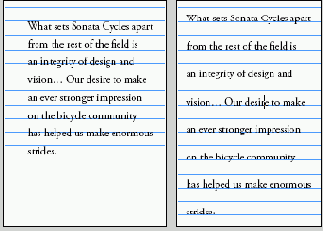 What sets Sonata Cycles apart
from the rest of the field is
an integrity of design and
vision… Our desire to make
an ever stronger impression
on the bicycle community
has helped us make enormous
strides.
What sets Sonata Cycles apart
from the rest of the field is
an integrity of design and
vision… Our desire to make
an ever stronger impression
on the bicycle community
has helped us make enormous
strides.